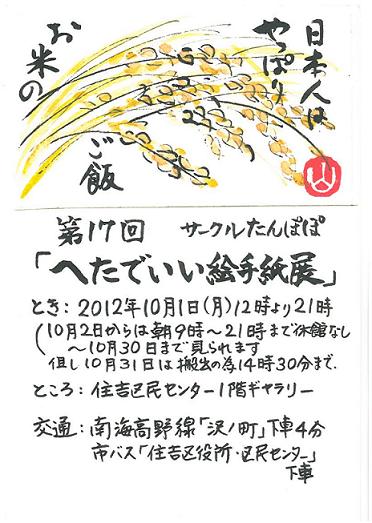 日本人は
やっぱり
お米の
ご飯
第17回 サークルたんぽぽ
「へたでいい絵手紙展」
とき：2012年10月1日(月)12時より21時
(10月2日からは朝9時～21時まで休館なし
～10月30日まで見られます
但し10月31日は搬出の為14時30分まで.
ところ：住吉区民センター1階ギャラリー
交通：南海高野線「沢ノ町」下車4分
市バス「住吉区役所・区民センター」
下車